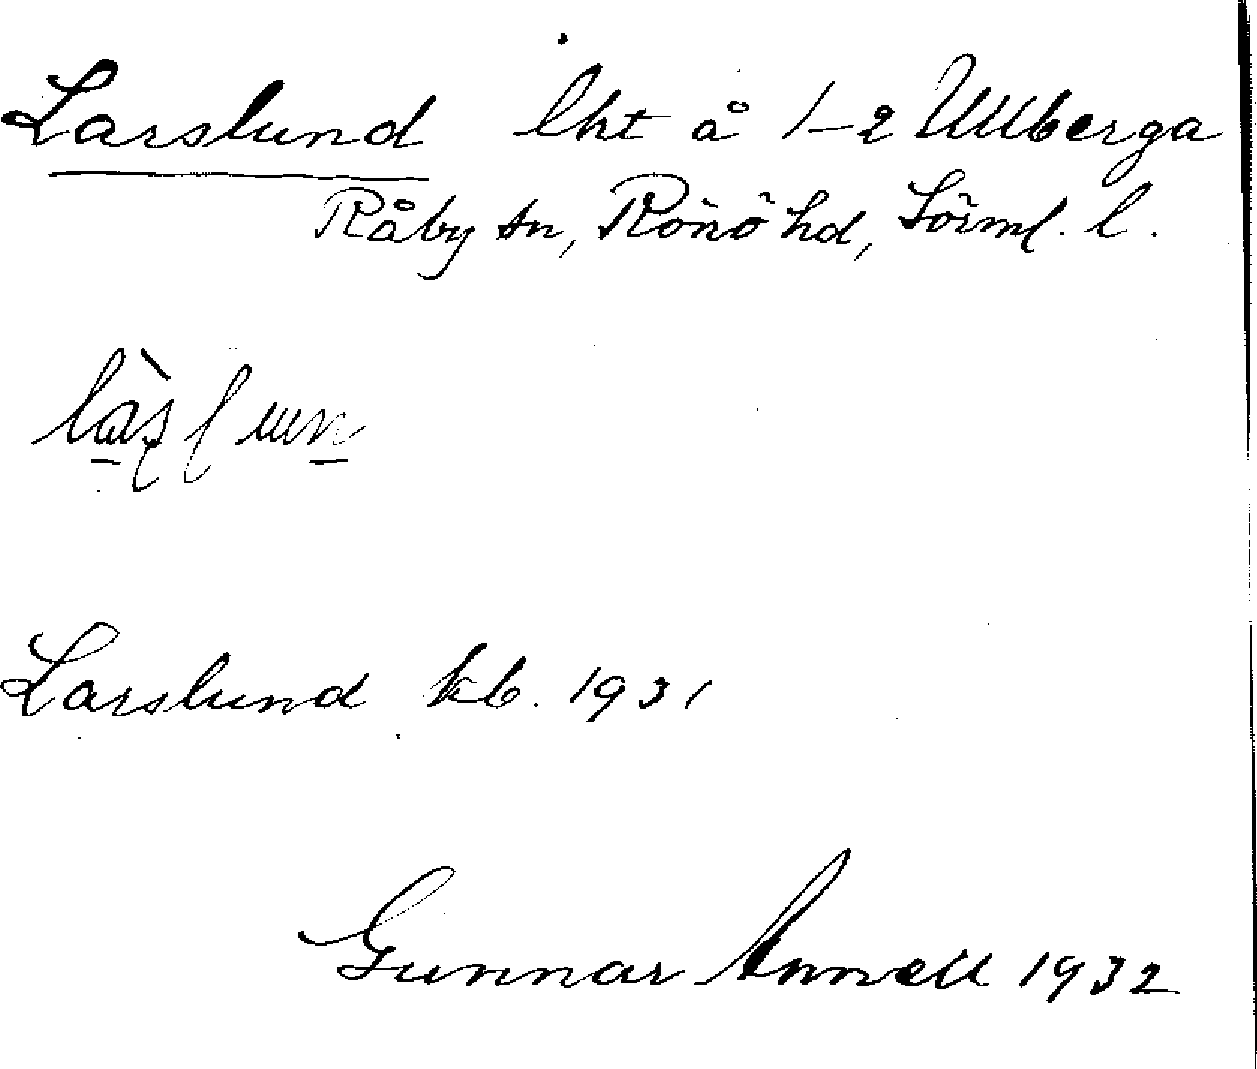 Larslund lht å 1-2 Ullberga
Råby sn, Rönö hd, Sörml. l.
Larslund kb. 1931
Gunnar Annell 1932